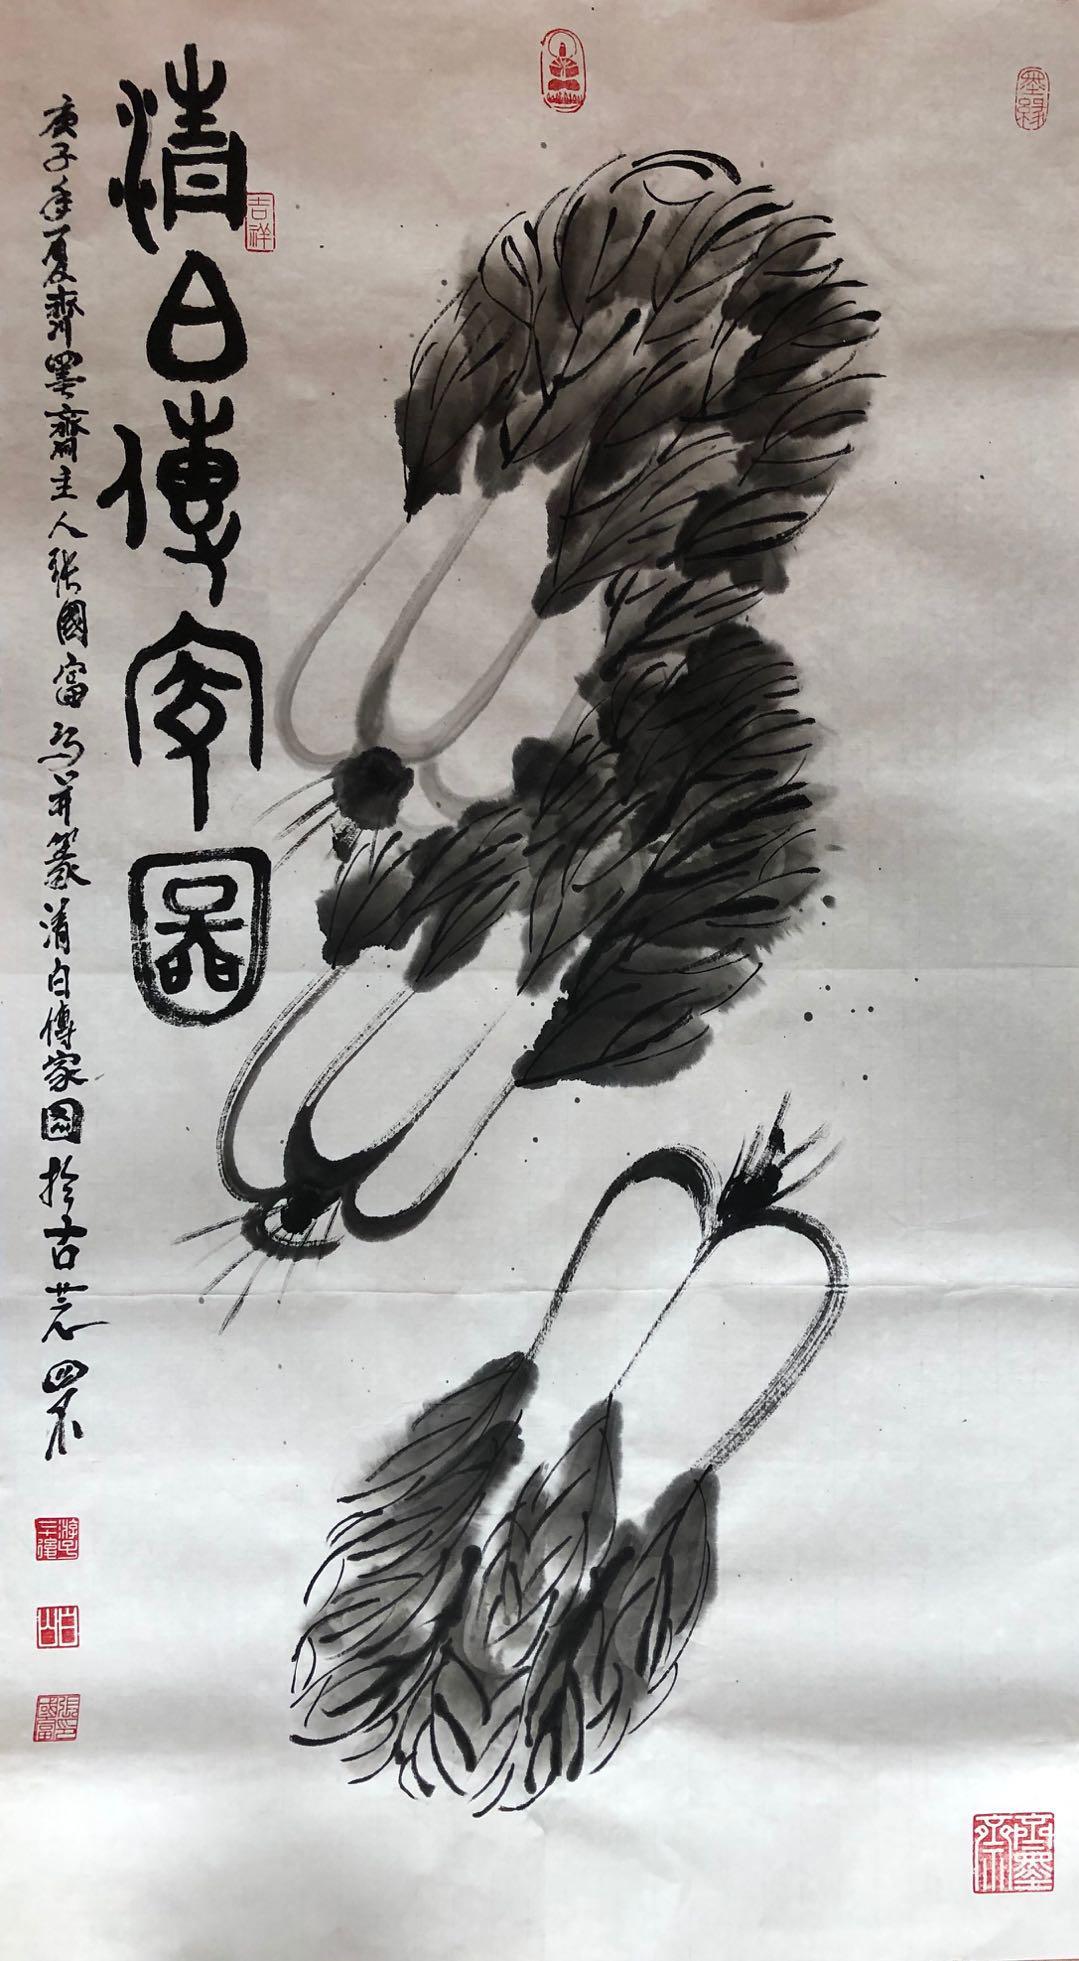 清白傳家圖
庚子年夏齊墨齋主人張國富寫并篆清白傳家圖於古燕
吉祥
墨緣
張國富印
齊墨齋